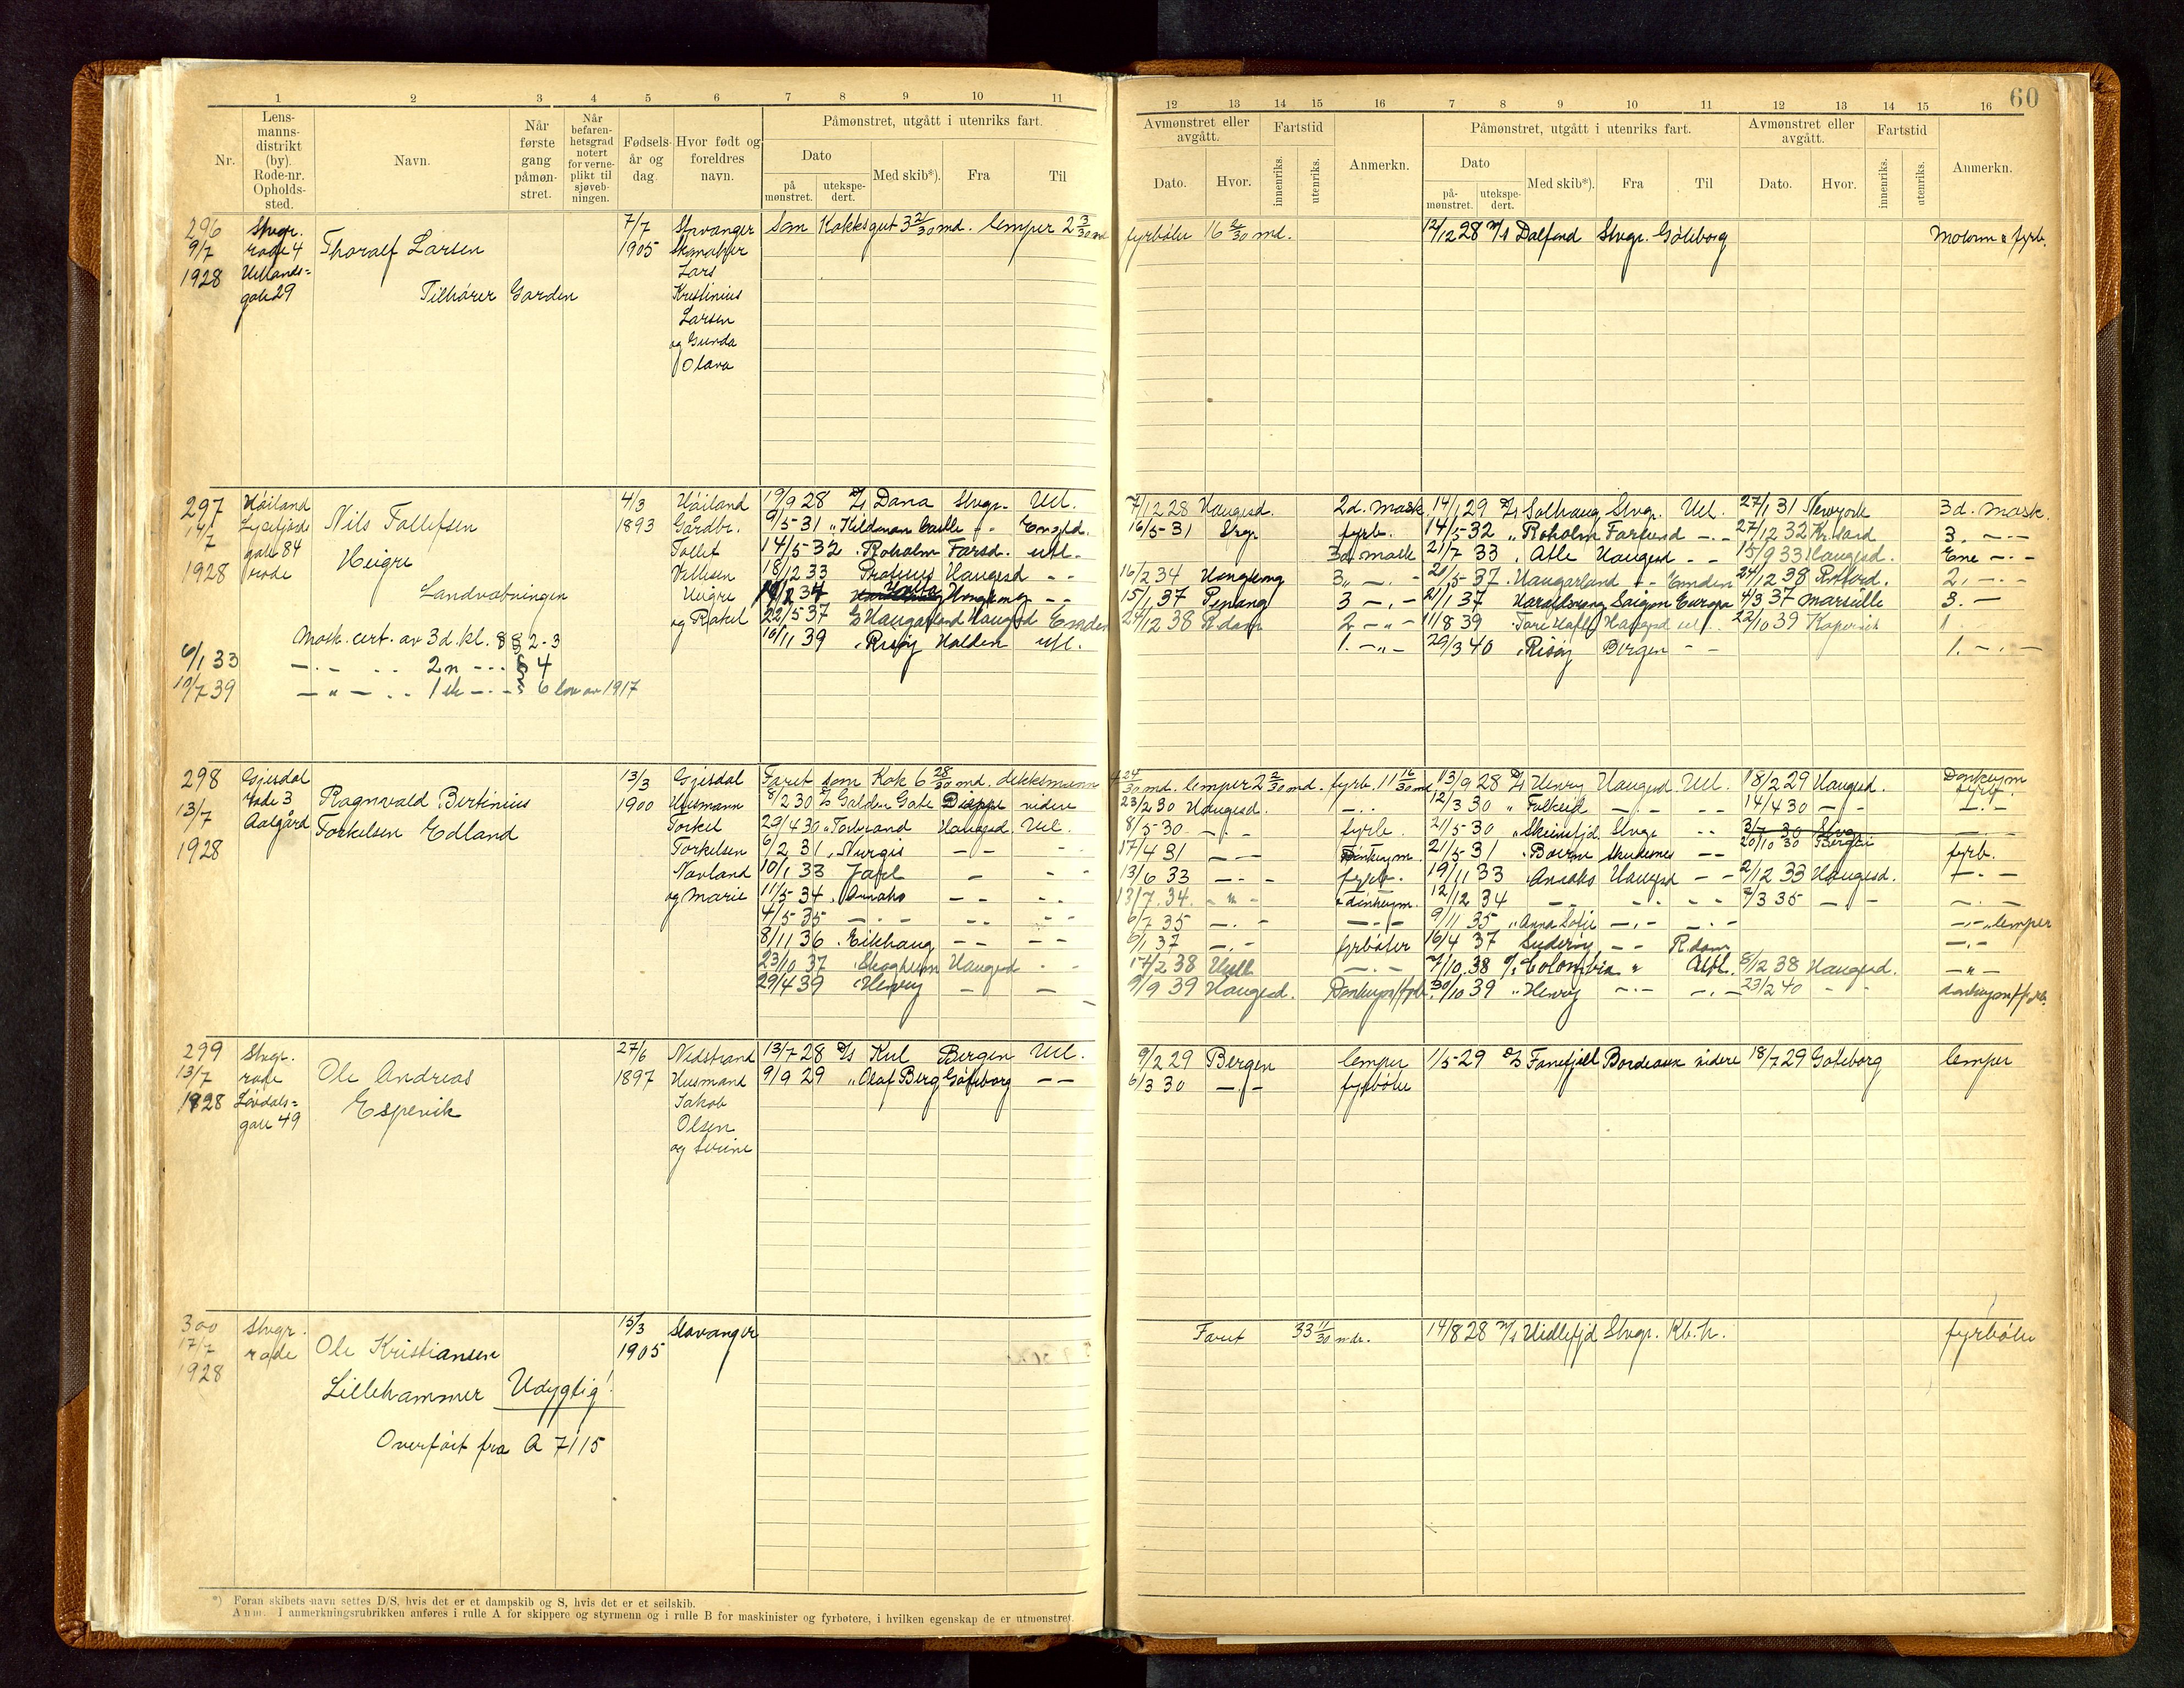 60
1 2 3 4 5 6 7 8 9 10 11
12 13 14 15 16 7 8 9 10 11 12 13 14 15 16
Nr.
Lens-
manns-
distrikt
(by).
Rode-nr.
Opholds-
sted.
Navn.
Når
første
gang
påmøn-
stret.
Når
befaren-
hetsgrad
notert
for verne-
plikt til
sjøveb-
ningen.
Fødsels-
år og
dag.
Hvor født og
foreldres
navn.
Påmønstret, utgått i utenriks fart.
Dato
på
mønstret.
utekspe-
dert.
Med skib*).
Fra
Til
Avmønstret eller
avgått.
Dato.
Hvor.
Fartstid
innenriks.
utenriks.
Anmerkn.
Påmønstret, utgått i utenriks fart.
Dato
på-
mønstret.
utekspe-
dert.
Med skib*).
Fra
Til
Avmønstret eller
avgått.
Dato.
Hvor.
Fartstid
innenriks.
utenriks.
Anmerkn.
296
9/7
1928
Stvgr.
rode 4
gate 29
Thoralf Larsen
Tilhører Garden
7/7
1905
Stavanger
Lars
Kristinius
Larsen
og Gunda
Olava
Som Kokksgut 3 21/30 md. lemper 2 3/30 md
fyrbøter 16 2/30 md.
12/12 28 M/s Dalfond Stvgr. Göteborg
297
14/7
1928
Høiland
gate 84
rode
Nils Tollefsen
Heigre
Landvæbningen
4/3
1893
Høiland
Gårdbr.
Tollef
Heigre
og Rakel
19/9 28 D/s Dana Stvgr. Utl.
7/12 28 Haugesd. 2d. mask.
14/1 29 D/s Solhaug Stvgr. Utl. 27/1 31 Newyork 3d. mask.
9/5-31 " Kildonan Castle - - Engld.
16/5-31 Stvgr fyrb.
14/5-32 " Roholm Farsund - - 27/12 32 Kr.sand 3. - - -
14/5-32 " Roholm Farsd. utl. 3d mask
21/7 33 " Atle Haugesd - - 15/9 33 Haugesd. Ene - - -
18/12 33 Haugesd - -
16/2 34 Hongkong 3 " - . -
21/5-37 " Haugarland - - Emden 24/12 38 2. - . -
34 Hongkong - -
15/1 37 Penang 3 - . -
21/1 37 Haraldsvang Saigon Europa 4/3 37 Marseille 3. -
22/5 37 Haugarland Haugesd Emden
24/12 38 R.dam 2 - " -
11/8 39 Haugesd utl. 22/10 39 1.
16/11 39 " Risøy Halden utl. 1. - " -
29/3 40 " Risøy Bergen - - 1. - . -
Mask. cert. av 3d. kl. §§ 2-3
6/1 33 - . - . . 2n - - - § 4
10/7 39 - " - . . 1ste - . - § 6 lov av 1917
298
13/7
1928
Gjesdal
rode 3
Aalgård
Ragnvald Bertinius
Torkelsen Edland
13/3
1900
Gjesdal
Husmann
Torkel
Torkelsen
Navland
og Marie
Faret som Kok 6 28/30 md. dekksmann
4 24/30 md. lemper 2 2/30 md. fyrb. 11 16/30 md.
13/9 28 D/s Henry Haugesd. Utl. 18/2 29 Haugesd. Donkeym
8/2 30 D/s Golden Gate Dieppe videre
23/2 30 Haugesd. - . -
12/3 30 " - . - - - 14/4 30 - . -
29/4 30 " Torbrand Haugesd. Utl.
8/5-30 - . - fyrb.
21/5-30 Stvgr - -
6/2 31 " Nurgis - - - -
17/4 31 - . - Donkeym.
21/5-31 Skudesnes - - 20/10 30 Bergen fyrb.
10/1 33 Jarl - - -
13/6 33 - . - fyrb.
19/11 33 Haugesd - - 2/12 33 Haugesd. - . -
11/5-34 - - - -
13/7 34. - " - donkeym.
12/12 34 - - - - - 2/3 35 - - - . -
4/5-35 - . - - - - -
6/7 35 - . - - . -
9/11 35 " Anna Sofie - . - - . - lemper
8/11 36 " Eikhaug - - - -
6/1 37 - . - fyrbøter
16/4 37 Suderøy - - R.dam - . -
23/10 37 " Skogheim Haugesd - -
14/2 38 Hull - . -
7/10 38 D/s Colombia " 8/2 38 Haugesd. - " -
29/4 39 " Henry - -
9/9 39 Haugesd. Donkeym/fyrb.
30/10 39 " Henry - . - - . - 23/2 40 - - donkeym/fyrb.
299
13/7
1928
Stvgr.
rode
Løvdals-
gate 49
Ole Andreas
Espevik
27/6
1897
Nedstrand
Husmand
Jakob
Olsen
og Serine
13/7-28 D/s Kul Bergen Utl.
9/2 29 Bergen lemper
1/5-29 D/s Fanefjell Bordeaux videre 18/7 29 Göteborg lemper
9/9 29 " Olaf Berg Göteborg - -
6/3 30 - . - fyrbøter
300
17/7
1928
Stvgr.
rode
Ole Kristiansen
Lillehammer Udygtig!
Overført fra A 7115
15/3
1905
Stavanger
Faret 33 11/30 md.
14/8 28 M/s Hidlefjd Stvgr. Kb.h. fyrbøter
*) Foran skibets navn settes D/S, hvis det er et dampskib og S, hvis det er et seilskib.
Anm. I anmerkningsrubrikken anføres i rulle A for skippere og styrmenn og i rulle B for maskinister og fyrbøtere, i hvilken egenskap de er utmønstret.